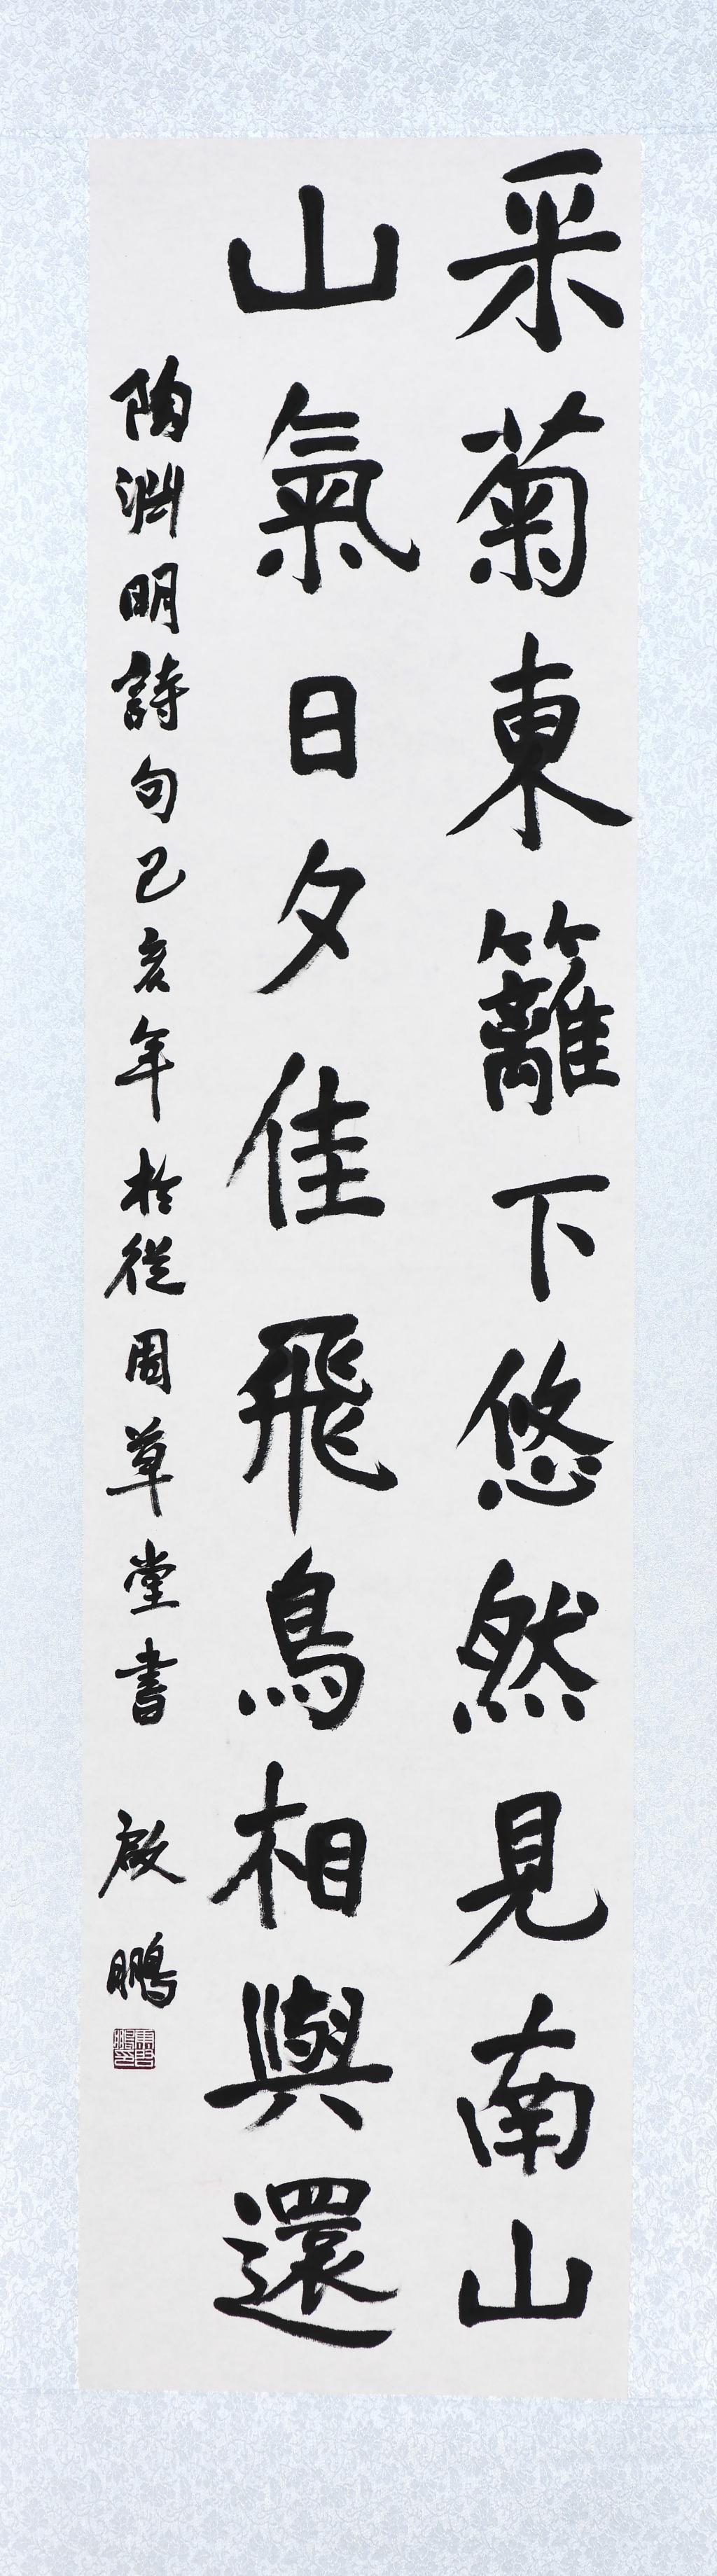 采菊東籬下悠然見南山
山氣日夕佳飛鳥相與還
陶淵明詩句己亥年於從周草堂書 啟鵬